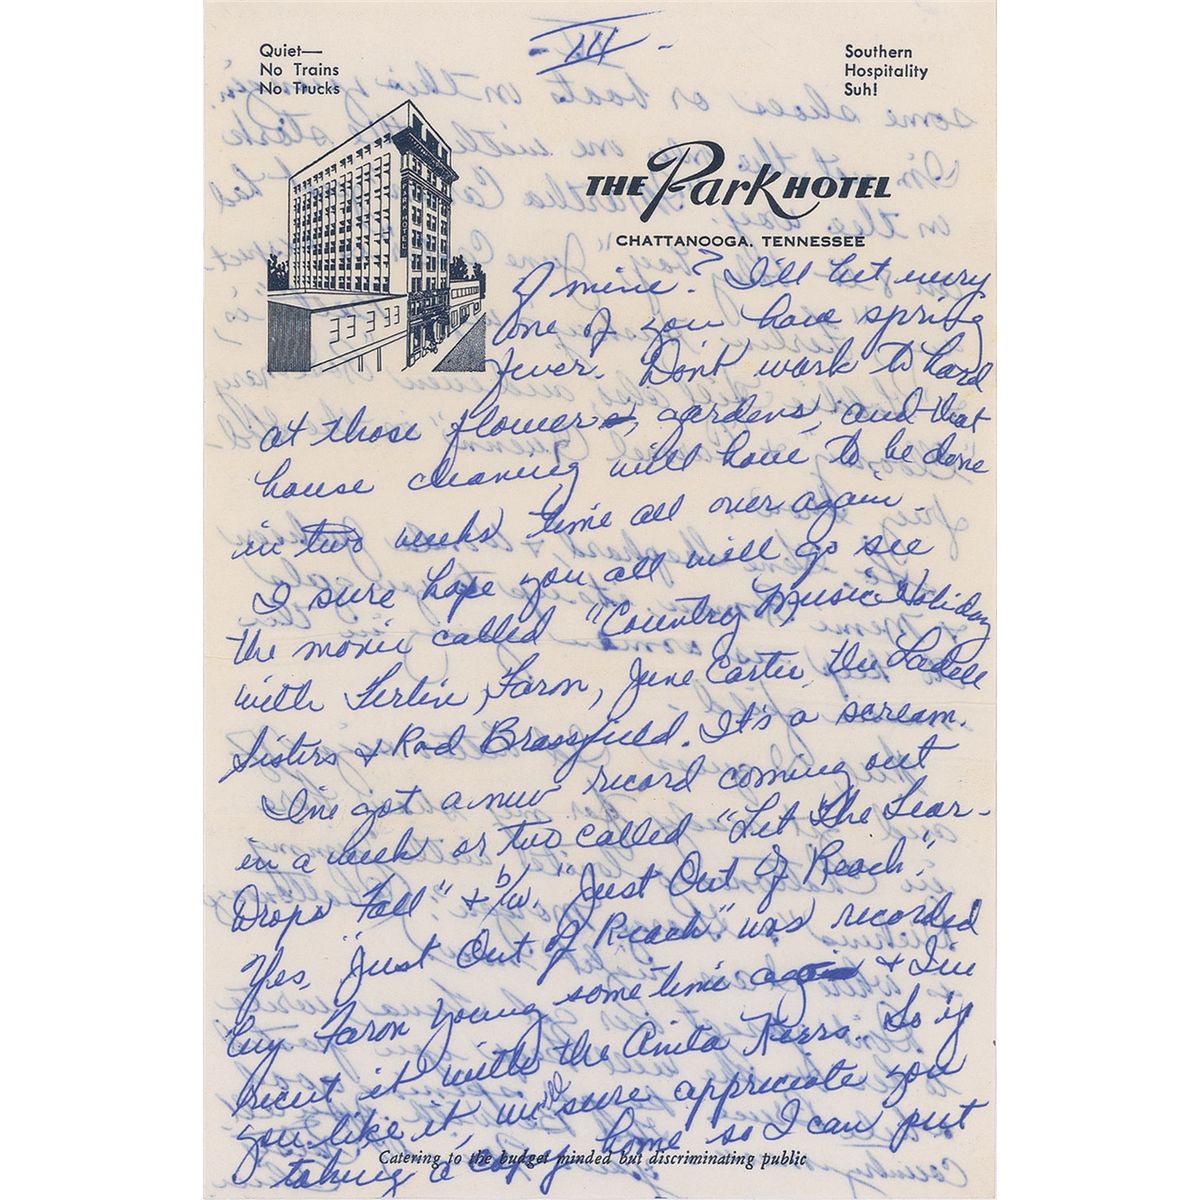 - III -
Quiet—
No Trains
No Trucks
Southern
Hospitality
Suh!
THE Park HOTEL
CHATTANOOGA, TENNESSEE
of mine? I'll bet every
one of you have spring
fever. Don't work to hard
at those flower, gardens, and that
house cleaning will have to be done
in two weeks time all over again.
I sure hope you all will go see
the movie called "Country Music Holiday
with Ferlin, Faron, June Carter, the LaDell
Sisters & Rod Brassfield. It's a scream.
I've got a new record coming out
in a week or two called "Let The Tear-
Drops Fall" & b/w. "Just Out Of Reach".
Yes, "Just Out Of Reach" was recorded
by Faron Young sometime ago & I've
recut it with the Anita Kerrs. So if
you like it, we'd sure appreciate you
taking a copy home so I can put
Catering to the budget minded but discriminating public